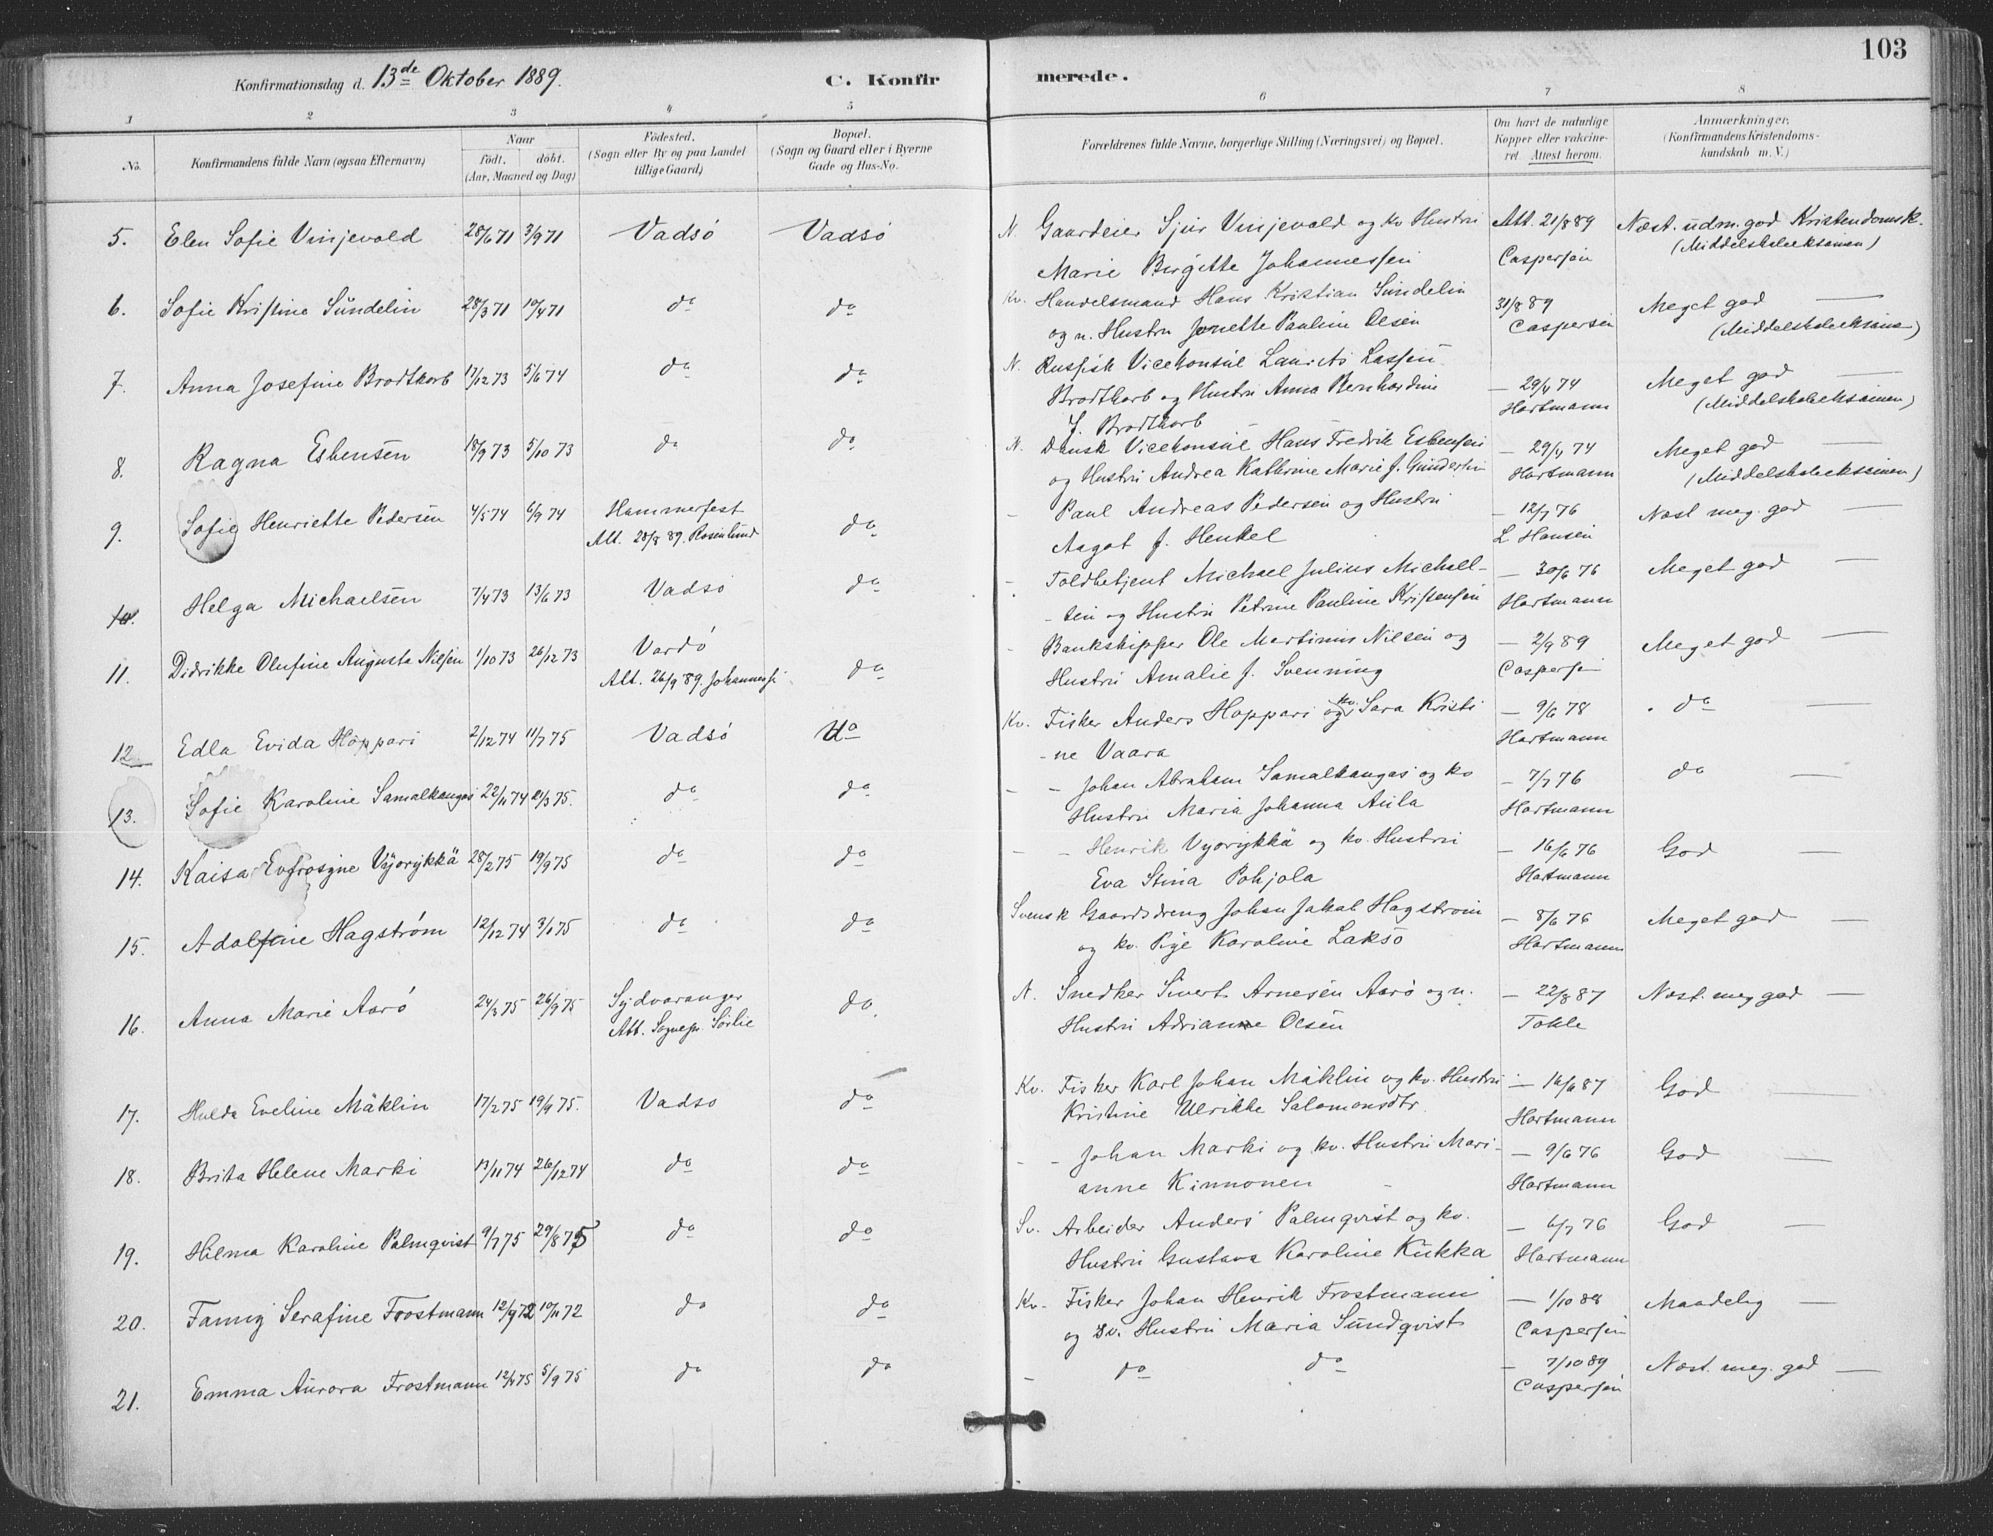 103
Konfirmationsdag d. 13de Oktober 1889.
C. Konfirmerede.
1 2 3 4 5 6 7 8
No.
Konfirmandens fulde Navn (ogsaa Efternavn)
Naar
født. døbt.
(Aar, Maaned og Dag)
Fødested.
(Sogn eller By og paa Landet
tillige Gaard)
Bopæl.
(Sogn og Gaard eller i Byerne
Gade og Hus-No.
Forældrenes fulde Navne, borgerlige Stilling (Næringsvei) og Bopæl.
Om havt de naturlige
Kopper eller vakcine-
ret. Attest herom.
Anmærkninger.
(Konfirmandens Kristendoms-
kundskab m. V.)
5. Elen Sofie Vinjevold 28/6 71 3/9 71 Vadsö Vadsö N. Gaardeier Sjur Vinjevold og kv Hustru Att. 21/8 89 Næst. udm. god Kristendomsk.
Marie Birgitte Johannessen Caspersen (Middelskoleeksamen)
6. Sofie Kristine Sundelin 28/3 71 10/4 71 do do Kv. Handelsmand Hans Kristian Sundelin 31/8 89 Meget god —
og n. Hustru Jonette Pauline Olsen Caspersen (Middelskoleeksamen)
7. Anna Josefine Brodtkorb 17/12 73 5/6 74 do do N. Russisk Vicekonsul Laurits Lassen
Brodtkorb og Hustru Anna Bernhardine — 29/4 74 Meget god —
J. Brodtkorb Hartmann (Middelskoleeksamen)
8. Ragna Esbensen 18/9 73 5/10 73 do do N. Dansk Vicekonsul Hans Fredrik Esbensen — 29/4 74 Meget god —
og Hustru Andrea Kathrine Marie f. Gundersen Hartmann (Middelskoleeksamen)
9. Sofie Henriette Pedersen 4/5 74 6/9 74 Hammerfest do - Paul Andreas Pedersen og Hustru — 12/7 76 Næst meg. god —
Att. 28/8 89. Rosenlund Aagot f. Henkel L Hansen
10. Helga Michaelsen 7/4 73 13/6 73 Vadsö do - Toldbetjent Michael Julius Michael- — 30/6 76 Meget god —
sen og Hustru Petrine Pauline Kristensen Hartmann
11. Didrikke Olufine Augusta Nilsen 1/10 73 26/12 73 Vardö do - Bankskipper Ole Martinius Nilsen og — 2/9 89 Meget god —
Att. 26/9 89. Johannessen Hustru Amalie f. Svenning Caspersen
12. Edla Evida Höppari 2/12 74 11/7 75 Vadsö do Kv. Fisker Anders Hoppari og kv. Sara Kristi — 9/6 78 do —
-ne Vaara Hartmann
13. Sofie Karoline Samalkangas 22/11 74 21/3 75. do do - - Johan Abraham Samalkangas og kv — 7/7 76 do —
Hustru Maria Johanna Aula Hartmann
14. Kaisa Evfrosyne Vyörykkä 28/2 75 19/9 75 do do - - Henrik Vyörykkä og kv. Hustru — 16/6 76 God —
Eva Stina Pohjola Hartmann
15. Adolfine Hagström 12/12 74 3/1 75 do do Svensk Gaardsdreng Johan Jakob Hagström — 8/6 76 Meget god —
og kv. Pige Karoline Laksö Hartmann
16. Anna Marie Aarö 24/3 75 26/9 75 Sydvaranger do. N. Snedker Sivert Arnesen Aarö og n. — 22/8 87 Næst. meg god —
Att. Sognepr. Sörlie Hustru Adrianne Olsen Tokle
17. Hulda Eveline Mäklin 17/2 75 19/9 75. Vadsö do Kv. Fisker Karl Johan Mäklin og kv. Hustru — 16/6 87 God —
Kristine Ulrikke Salomonsdtr. Hartmann
18. Brita Helene Marki 13/11 74 26/12 74 do do - - Johan Marki og kv. Hustru Mari- — 9/6 76 God —
anne Kinnonen Hartmann
19. Hilma Karoline Palmqvist 9/7 75 29/8 75 do do Sv. Arbeider Anders Palmqvist og kv. — 6/7 76 God —
Hustru Gustava Karoline Kukka Hartmann
20. Fanny Serafine Frostmann 12/9 72 10/11 72 do do Kv. Fisker Johan Henrik Frostmann — 1/10 88 Maadelig —
og Sv. Hustru Maria Sundqvist Caspersen
21. Emma Aurora Frostmann 12/4 75 5/9 75 do do - do do — 7/10 89 Næst. meg. god —
Caspersen